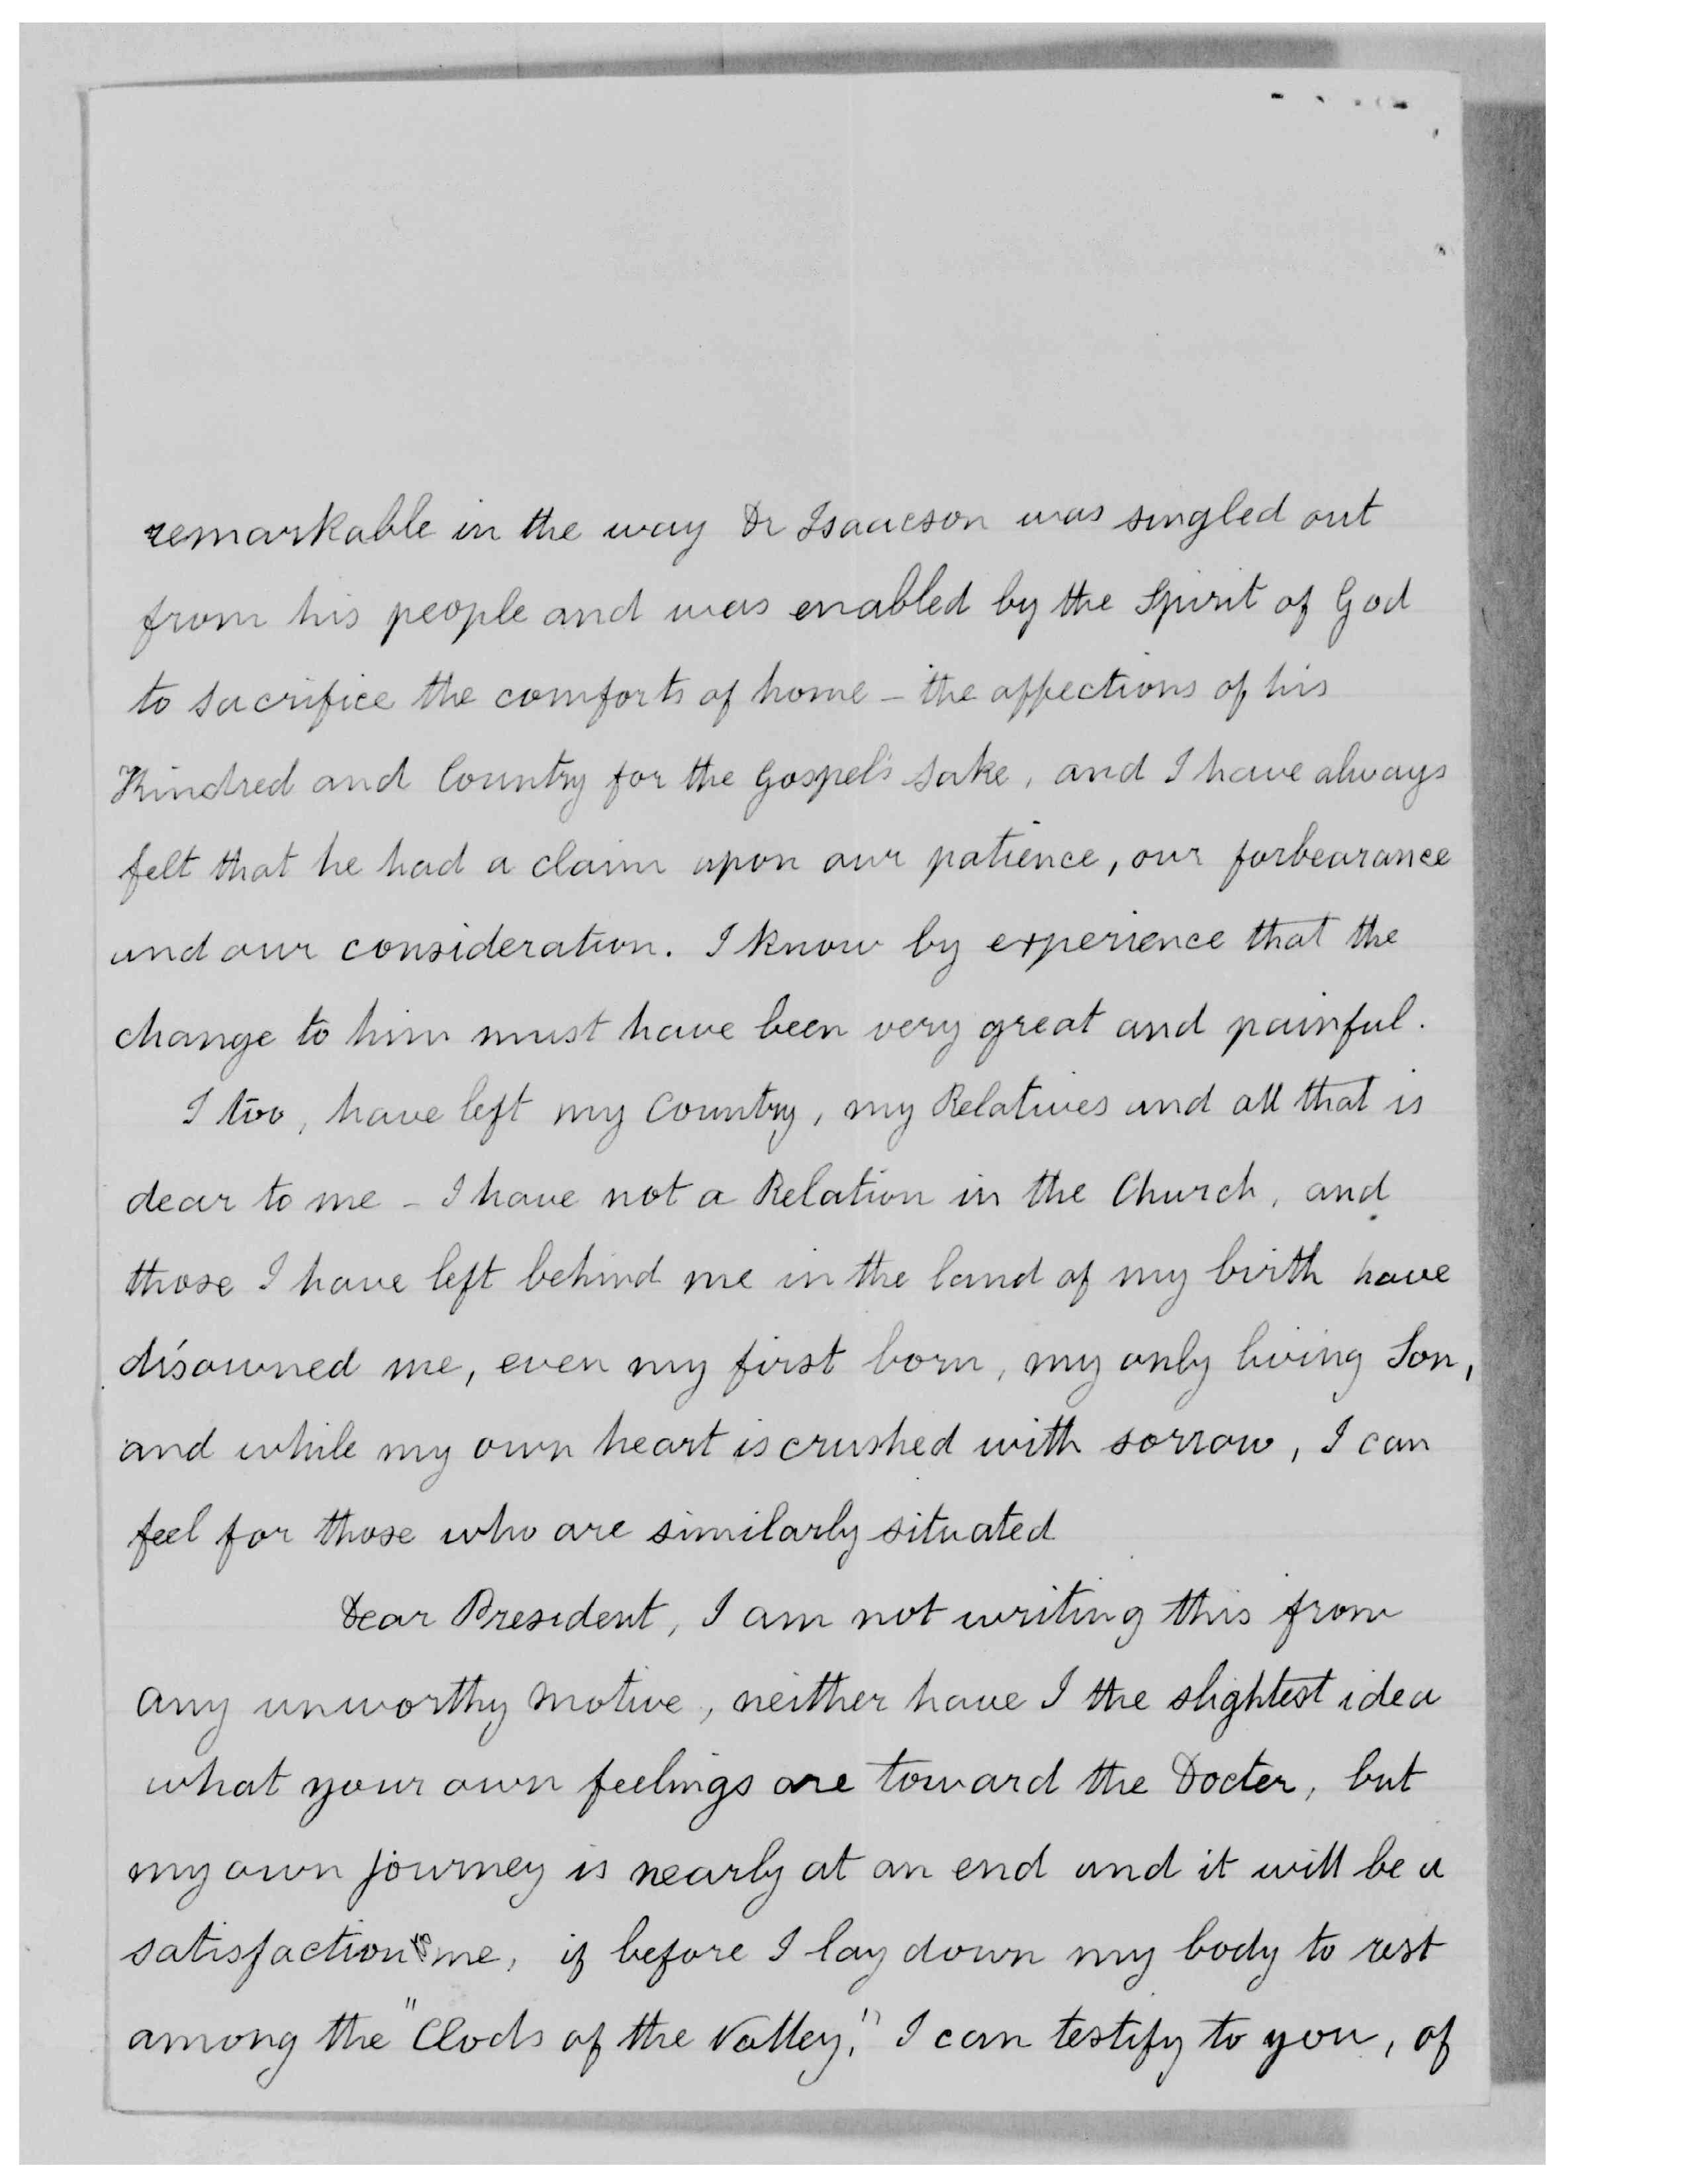 remarkable in the way Dr Isaacson was singled out
from his people and was enabled by the Spirit of God
to sacrifice the comforts of home – the affections of his
Kindred and Country for the Gospel's sake, and I have always
felt that he had a claim upon our patience, our forbearance
and our consideration. I know by experience that the
change to him must have been very great and painful.
I too, have left my Country, my Relatives and all that is
dear to me – I have not a Relation in the Church, and
those I have left behind me in the land of my birth have
disowned me, even my first born, my only living Son,
and while my own heart is crushed with sorrow, I can
feel for those who are similarly situated
Dear President, I am not writing this from
any unworthy motive, neither have I the slightest idea
what your own feelings are toward the Docter, but
my own journey is nearly at an end and it will be a
satisfaction to me, if before I lay down my body to rest
among the "Clods of the Valley," I can testify to you, of